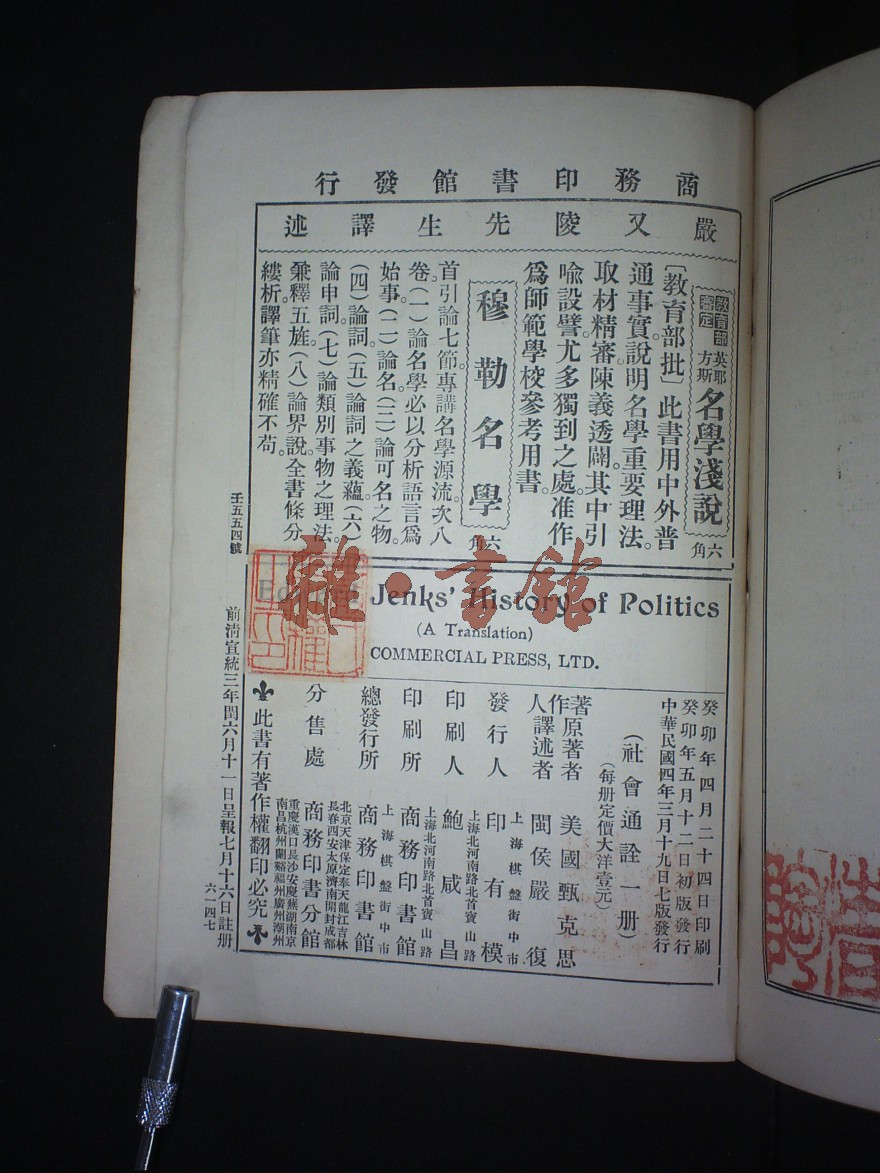 商務印書館發行
嚴又陵先生譯述
教育部審定
英耶方斯
名學淺說
六角
〔教育部批〕此書用中外普
通事實。說明名學重要理法。
取材精審陳義透闢。其中引
喻設譬。尤多獨到之處。准作
爲師範學校參考用書。
穆勒名學
六角
首引論七節專講名學源流。次八
卷(一)論名學必以分析語言爲
始事。(二)論名(三)論可名之物。
(四)論詞。(五)論詞之義蘊(六)
論申詞。(七)論類別事物之理法。
兼釋五旌。(八)論界說。全書條分
縷析。譯筆亦精確不苟。
壬五五四號
Jenks' History of Politics
(A Translation)
COMMERCIAL PRESS, LTD.
癸卯年四月二十四日印刷
癸卯年五月十二日初版發行
中華民國四年三月十九日七版發行
(社會通詮一册)
(每册定價大洋壹元)
著作人
原著者 美國甄克思
譯述者 閩侯嚴復
發行人 印有模
上海棋盤街中市
印刷人 鮑咸昌
上海北河南路北首寶山路
印刷所 商務印書館
上海北河南路北首寶山路
總發行所 商務印書館
上海棋盤街中市
分售處 商務印書分館
北京天津保定奉天龍江吉林
長春西安太原濟南開封成都
重慶漢口長沙安慶蕪湖南京
南昌杭州蘭谿福州廣州潮州
此書有著作權翻印必究
前清宣統三年閏六月十一日呈報七月十六日註册
六一四七
雜·書館